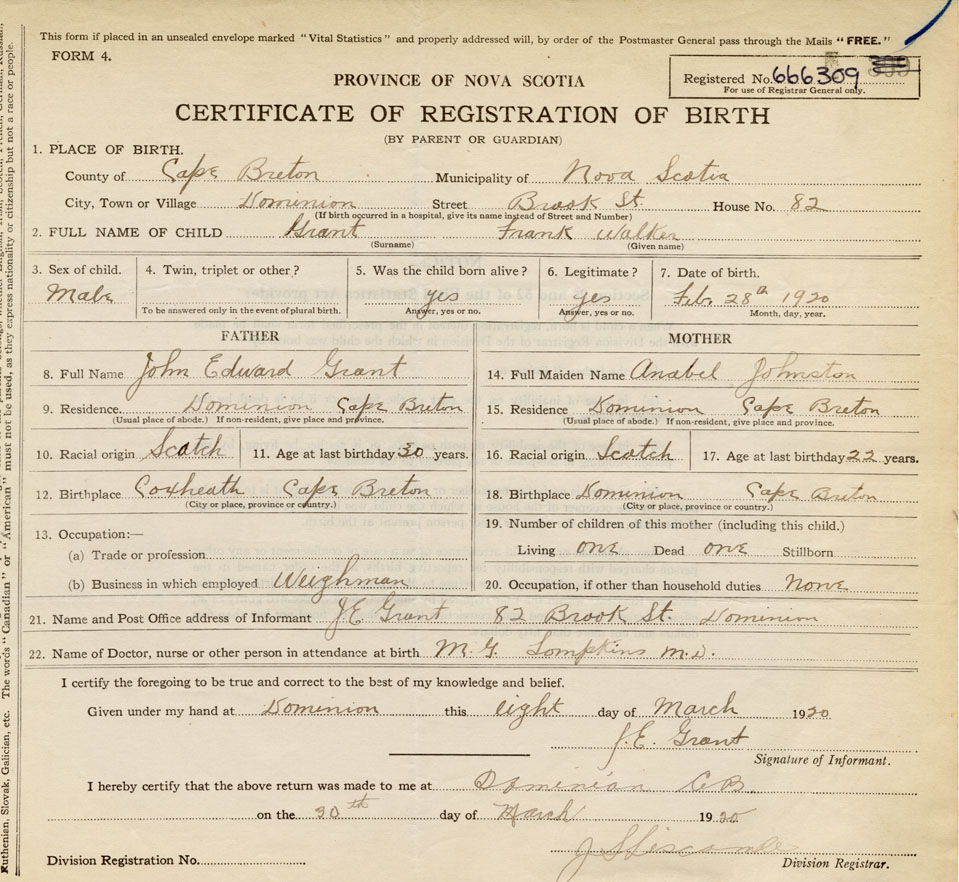 This form if placed in an unsealed envelope marked "Vital Statistics" and properly addressed will, by order of the Postmaster General pass through the Mails "FREE."
FORM 4.
PROVINCE OF NOVA SCOTIA
Registered No. 666309
For use of Registrar General only.
CERTIFICATE OF REGISTRATION OF BIRTH
(BY PARENT OR GUARDIAN)
1. PLACE OF BIRTH.
County of Cape Breton Municipality of Nova Scotia
City, Town or Village Dominion Street Brook St. House No. 82
(If birth occurred in a hospital, give its name instead of Street and Number)
2. FULL NAME OF CHILD Grant Frank Walker
(Surname) (Given name)
3. Sex of child. 4. Twin, triplet or other? 5. Was the child born alive? 6. Legitimate? 7. Date of birth.
Male yes yes Feb. 28th 1920
To be answered only in the event of plural birth. Answer, yes or no. Answer, yes or no. Month, day, year.
FATHER
8. Full Name John Edward Grant
9. Residence. Dominion Cape Breton
(Usual place of abode.) If non-resident, give place and province.
10. Racial origin Scotch 11. Age at last birthday 30 years.
12. Birthplace Coxheath Cape Breton
(City or place, province or country.)
13. Occupation:—
(a) Trade or profession
(b) Business in which employed Weighman
MOTHER
14. Full Maiden Name Anabel Johnston
15. Residence Dominion Cape Breton
(Usual place of abode.) If non-resident, give place and province.
16. Racial origin Scotch 17. Age at last birthday 22 years.
18. Birthplace Dominion Cape Breton
(City or place, province or country.)
19. Number of children of this mother (including this child.)
Living one Dead one Stillborn
20. Occupation, if other than household duties None
21. Name and Post Office address of Informant J.E. Grant 82 Brook St. Dominion
22. Name of Doctor, nurse or other person in attendance at birth M. G. Tompkins M.D.
I certify the foregoing to be true and correct to the best of my knowledge and belief.
Given under my hand at Dominion this eight day of March 1920
J.E. Grant
Signature of Informant.
I hereby certify that the above return was made to me at Dominion C.B.
on the 30th day of March 1920
Division Registration No.
Division Registrar.
Ruthenian, Slovak, Galician, etc. The words "Canadian" or "American" must not be used, as they express nationality or citizenship but not a race or people.